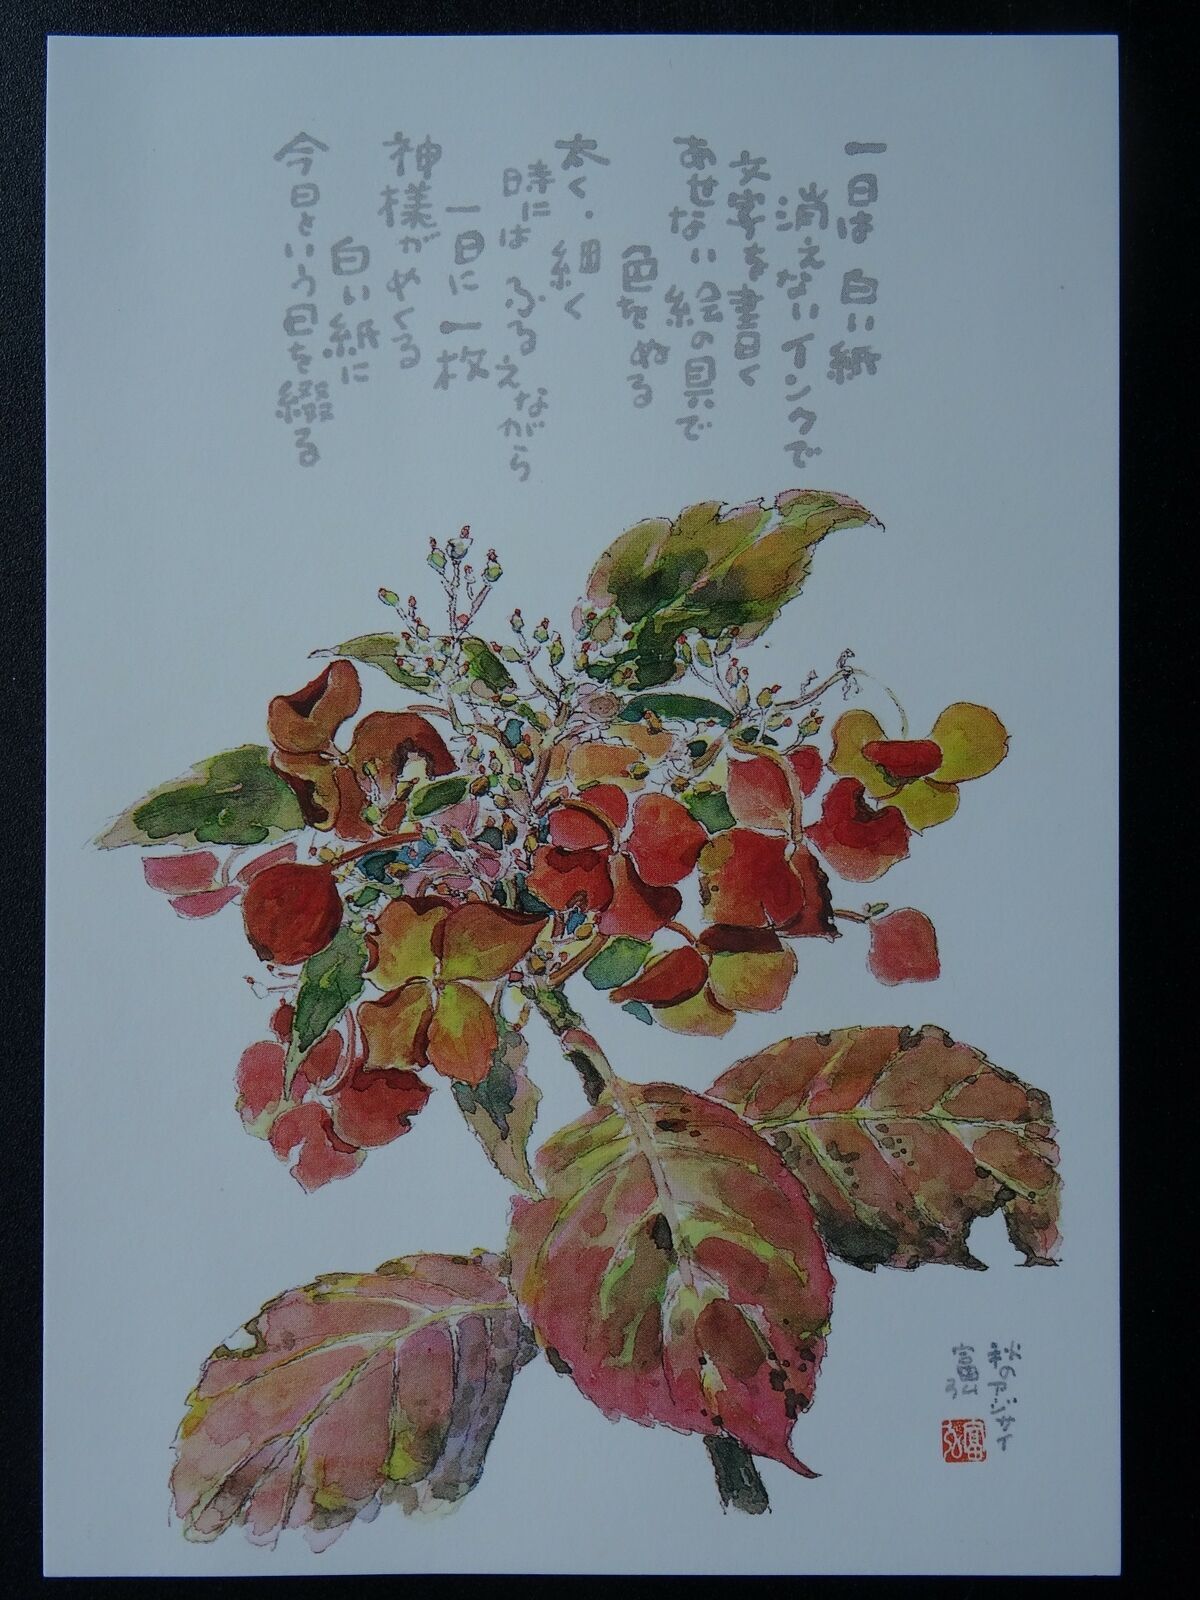 一日は 白い紙
消えないインクで
文字を書く
あせない絵の具で
色をぬる
太く・細く
時には ふるえながら
一日に 一枚
神様がめくる
白い紙に
今日という日を綴る
秋のアジサイ
富弘